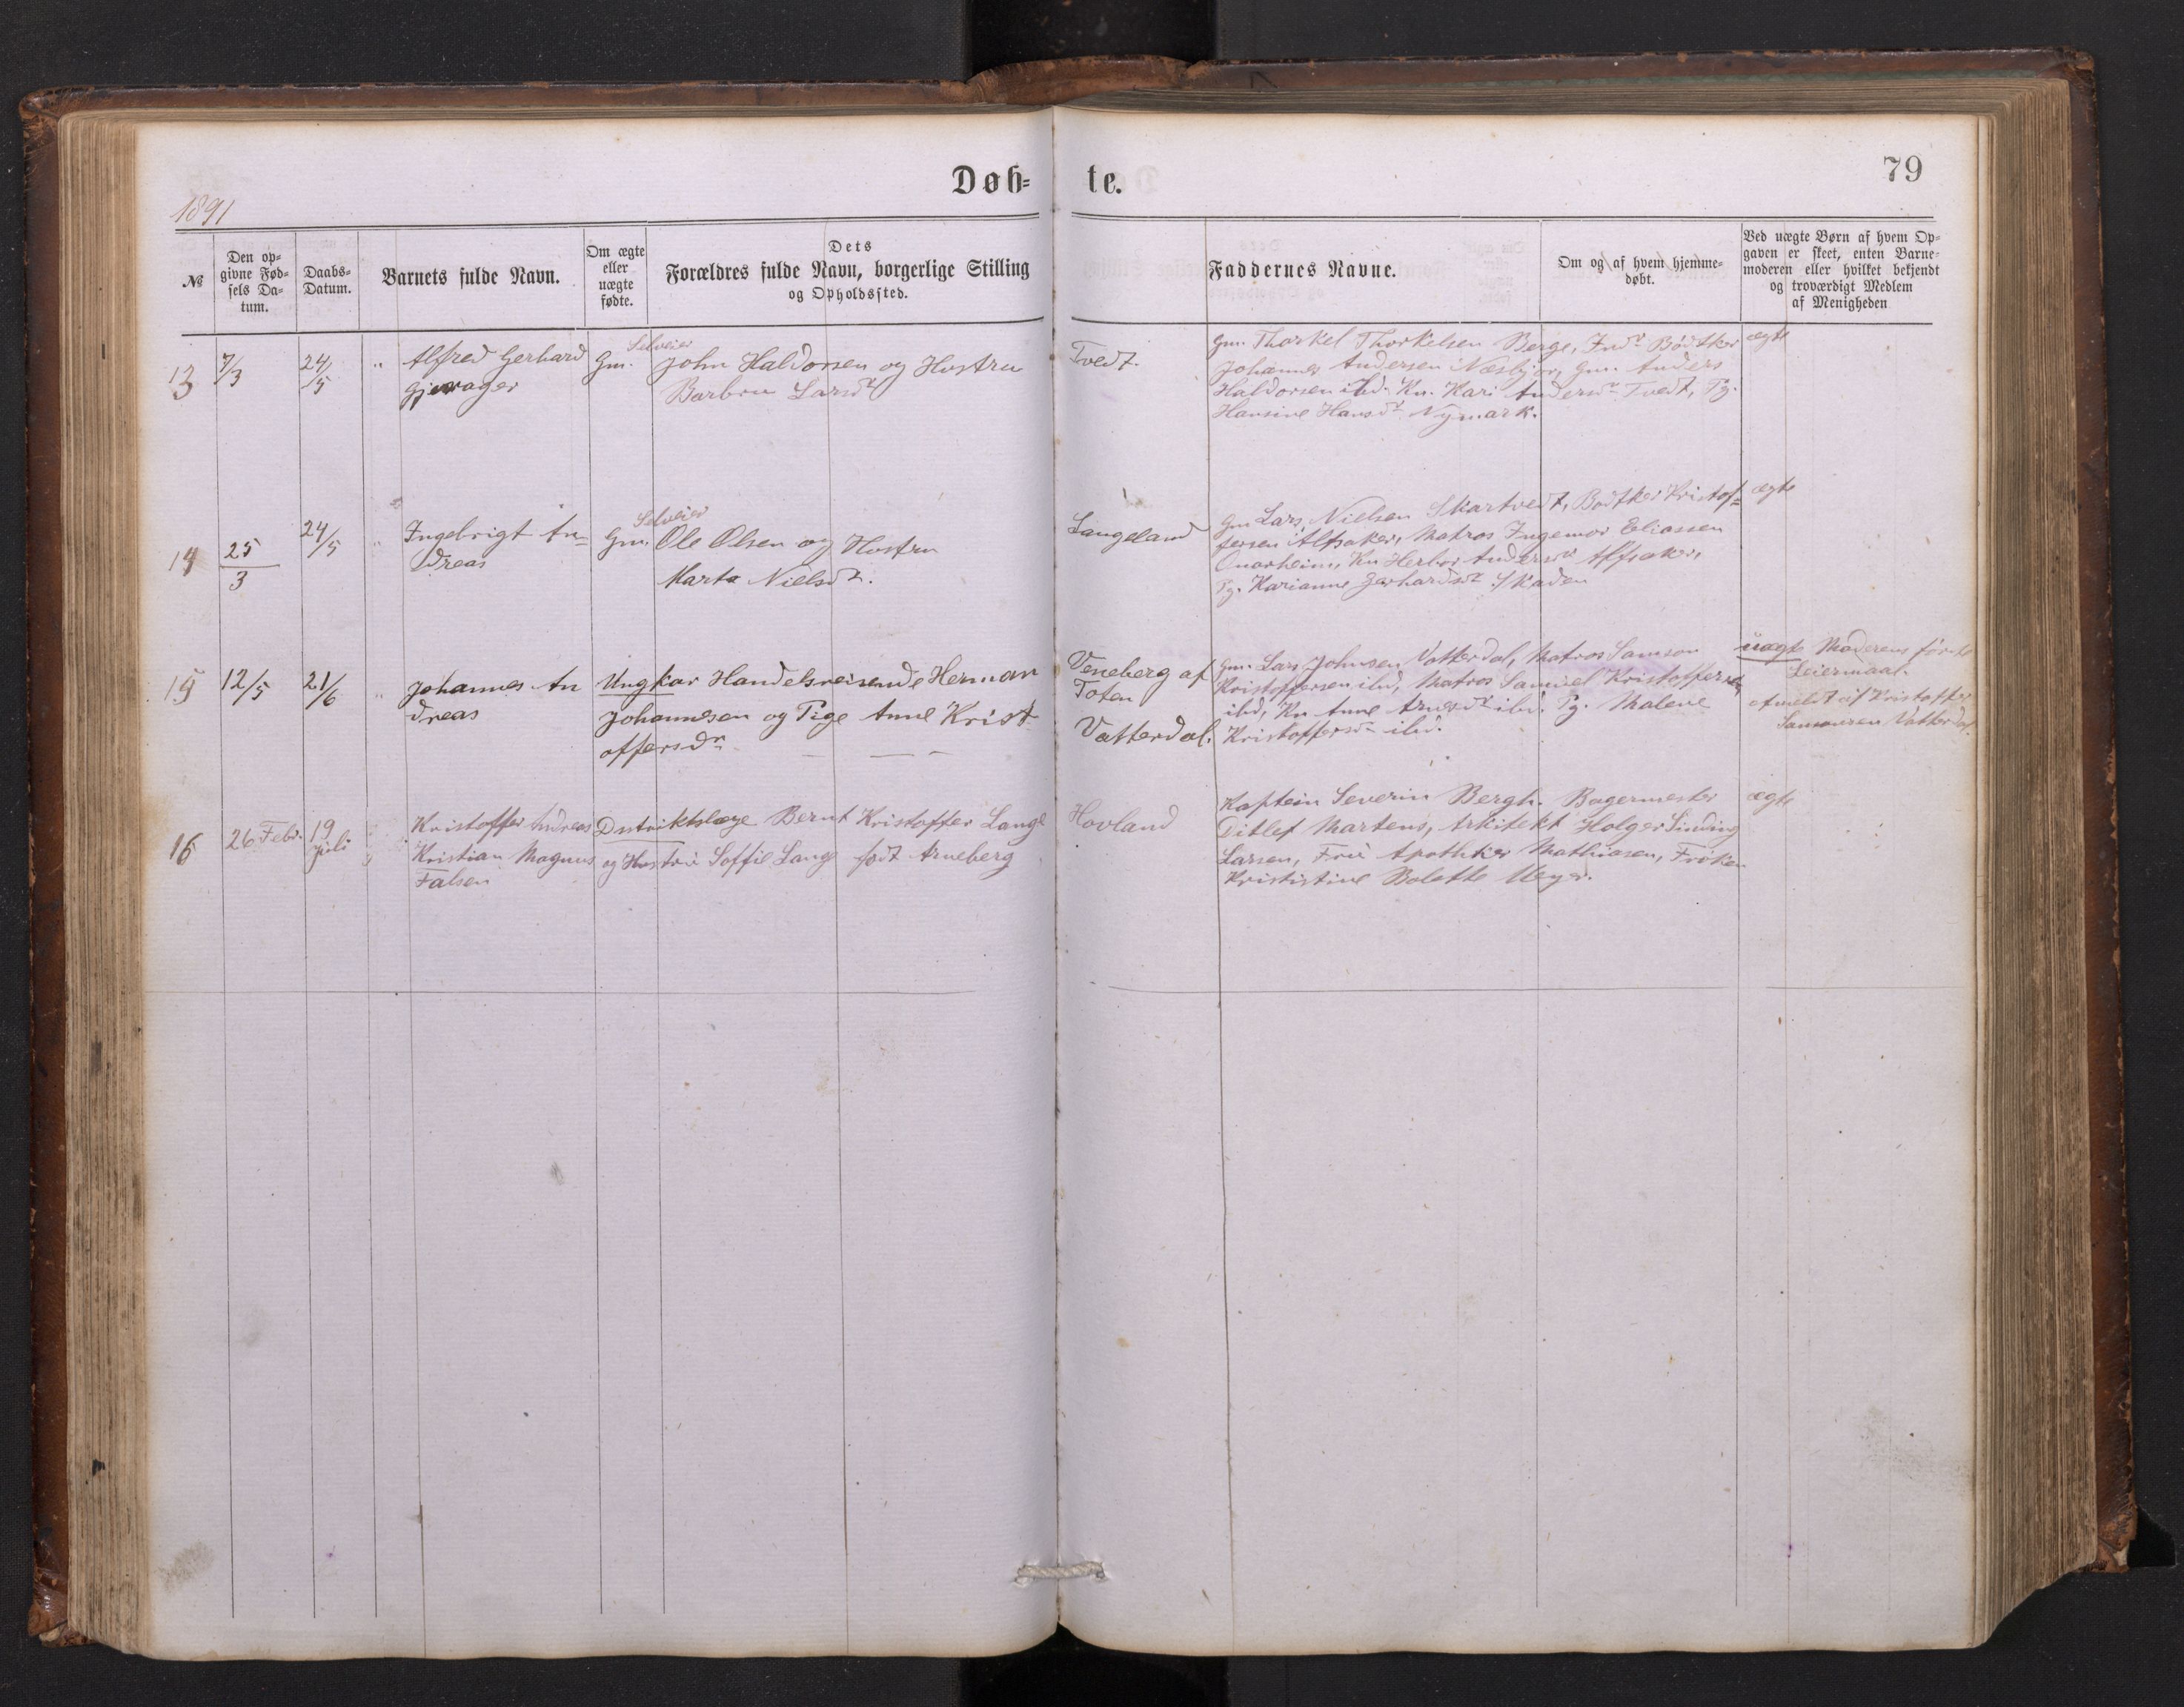 Døb-
te.
79
1891
№
Den op-
givne Fød-
sels Da-
tum.
Daabs-
Datum.
Barnets fulde Navn.
Om ægte
eller
uægte
fødte.
Dets
Forældres fulde Navn, borgerlige Stilling
og Opholdssted.
Faddernes Navne.
Om og af hvem hjemme-
døbt.
Ved uægte Børn af hvem Op-
gaven er skeet, enten Barne-
moderen eller hvilket bekjendt
og troværdigt Medlem
af Menigheden
13
7/3
24/5
"
Alfred Gerhard
Gjerager
Selveier
Gm. John Haldorsen og Hustru
Barbru Larsdr
Tvedt.
Gm. Thorkel Thorkelsen Berge, Indr Bødtker
Johannes Andersen Næsbjør, Gm. Anders
Haldorsen ibd. Kn. Kari Andersdr Tvedt, Pg.
Hansine Hansdr Nymark.
ægte
14
25
3
24/5
"
Ingebrigt An-
dreas
Selveier
Gm. Ole Olsen og Hustru
Marta Nielsdr.
Langeland
Gm Lars Nielsen Skartvedt, Bødtker Kristof-
fersen Alsaker, Matros Ingemor Eliassen
Onarheim, Kn Herbor Andersdr Alsaker,
Pg. Karianne Gerhardsdr Skaden
ægte
15
12/5
21/6
"
Johannes An
dreas
Ungkar Handelsreisende Herman
Johannesen og Pige Anne Krist
offersdr
Veneberg af
Toten
Vatterdal.
Gm. Lars Johnsen Vatterdal, Matros Samson
Kristoffersen ibd, Matros Samuel Kristoffersen
ibd, Kn Anne Arnesdr ibd. Pg. Malene
Kristoffersdr ibd.
uægte Moderens første
Leiermaal.
Anmeldt af Kristoffer
Samonsen Vatterdal.
16
26 Febr.
19
juli
"
Kristoffer Andreas
Kristian Magnus
Falsen
Distriktslæge Bernt Kristoffer Lange
og Hustru Soffie Lange født Arneberg
Hovland
Kaptein Severin Bergh. Bagermester
Ditlef Martens, Arkitekt Holger Sinding
Larsen, Fru Apotheker Mathiasen, Frøken
Krististine Bolette Meyer.
ægte